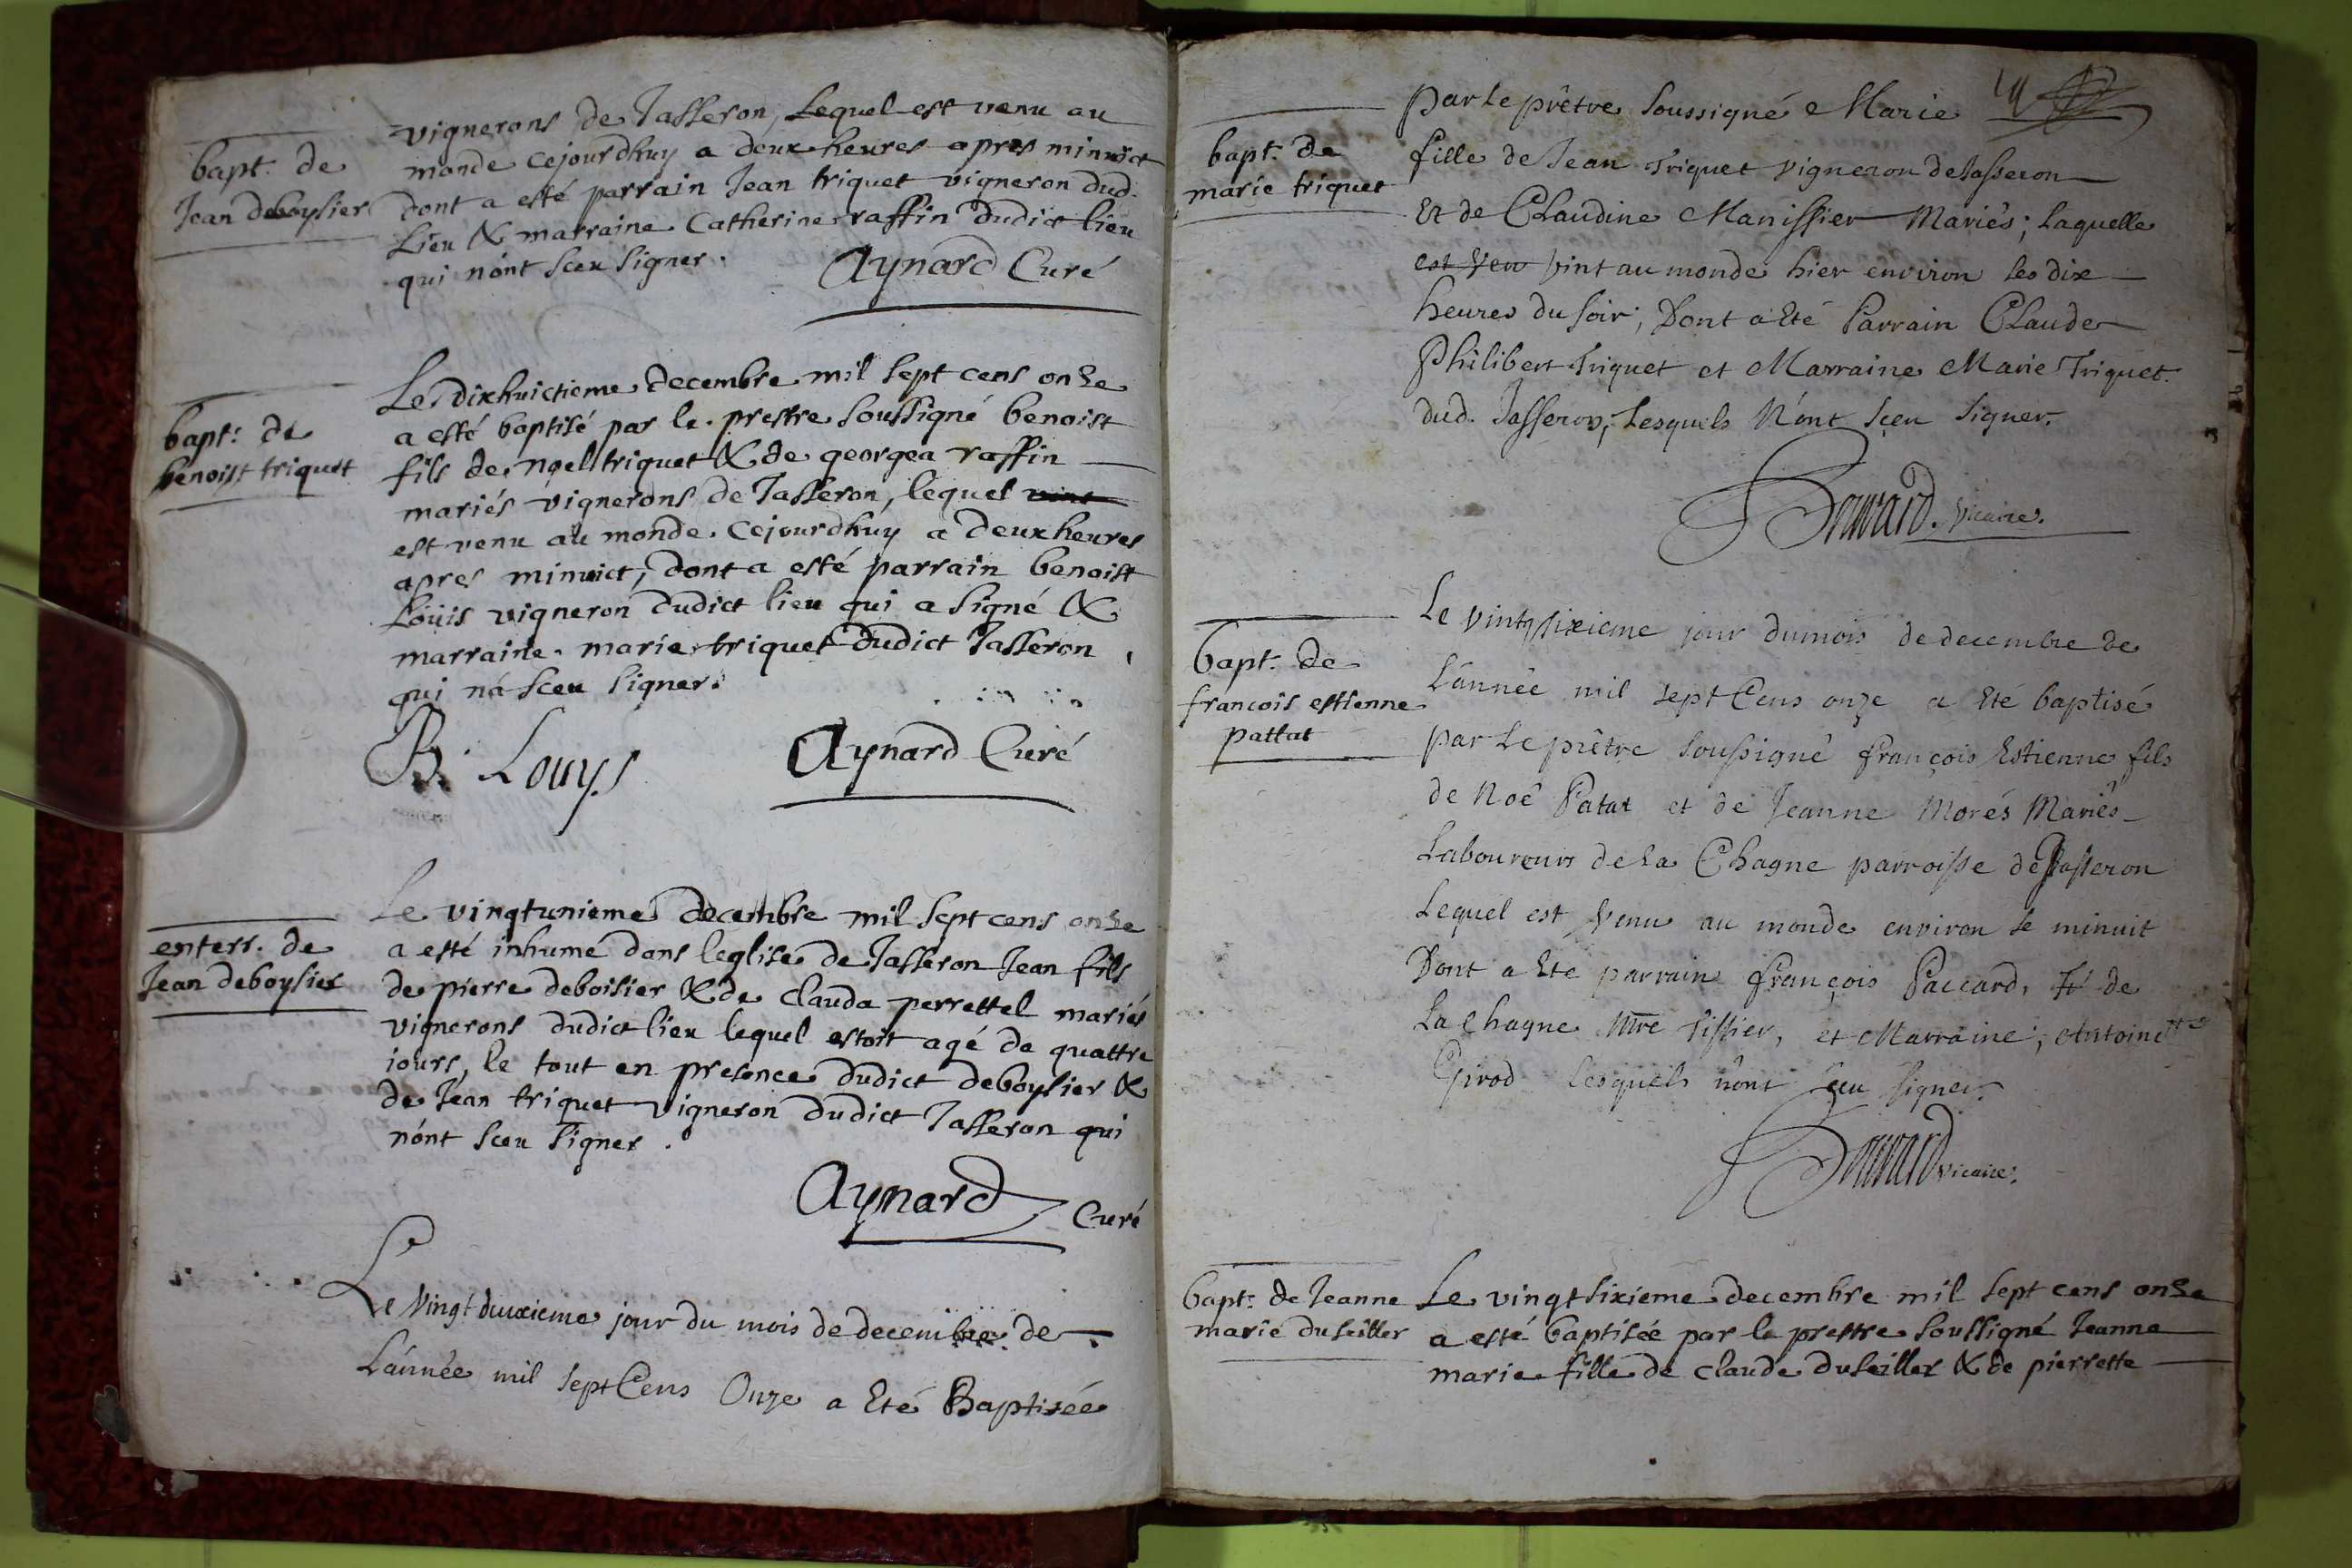 vignerons de Jasseron, Lequel est venu au
bapt. de
Jean deboysier
monde cejourdhuy a deux heures apres minuict
dont a esté parrain Jean triquet vigneron dud.
Lieu & marraine Catherine raffin dudict lieu
qui n'ónt sceu signer.
Aynard Curé
bapt. de
benoist triquet
Le dixhuictieme decembre mil sept cens onze
a esté baptisé par le prestre soussigné benoist
fils de noel triquet & de georgea raffin
mariés vignerons de Jasseron, lequel vint
est venu au monde cejourdhuy a deux heures
apres minuict, dont a esté parrain benoist
Loüis vigneron dudict lieu qui a signé &
marraine marie triquet dudict Jasseron,
qui n'á sceu signer.
B. Louys
Aynard Curé
enterr. de
Jean deboysier
Le vingtunieme decembre mil sept cens onze
a esté inhumé dans leglise de Jasseron Jean fils
de pierre deboisier & de clauda perrettel mariés
vignerons dudict lieu lequel estoit agé de quattre
jours, le tout en presence dudict deboysier &
de Jean triquet vigneron dudict Jasseron qui
n'ónt sceu signer.
Aynard Curé
Le Vingt deuxieme jour du mois de decembre de
L'année mil sept Cens Onze a Eté Baptisée
par Le prêtre soussigné Marie
bapt. de
marie triquet
fille de Jean Triquet vigneron de Jasseron
Et de Claudine Manissier Mariés; Laquelle
est Venu vint au monde hier environ les dix
heures du soir; Dont a Eté Parrain Claude
Philibert Triquet et Marraine Marie Triquet
dud. Jasseron; Lesquels N'ont sçeu signer.
vicaire.
bapt. de
francois estienne
pattat
Le vintgsixieme jour du mois de decembre de
L'année mil sept Cens onze a Eté baptisé
par Le prêtre soussigné françois Estienne fils
de Noé Patat et de Jeanne Morés Mariés
Laboureurs de La Chagne parroisse de Jasseron
Lequel est Venu au monde environ le minuit
Dont a Eté parrain françois Paccard, de
La Chagne Mtre Tissier, et Marraine; Antoinette
Girod Lesquels n'ont sçeu signer.
vicaire.
bapt. de Jeanne
marie duseiller
Le vingtsixieme decembre mil sept cens onze
a esté baptisée par le prestre soussigné Jeanne
marie fille de claude duseiller & de pierrette